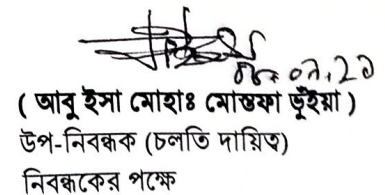 ( আবু ইসা মোহাঃ মোস্তফা ভূঁইয়া )
উপ-নিবন্ধক (চলতি দায়িত্ব)
নিবন্ধকের পক্ষে